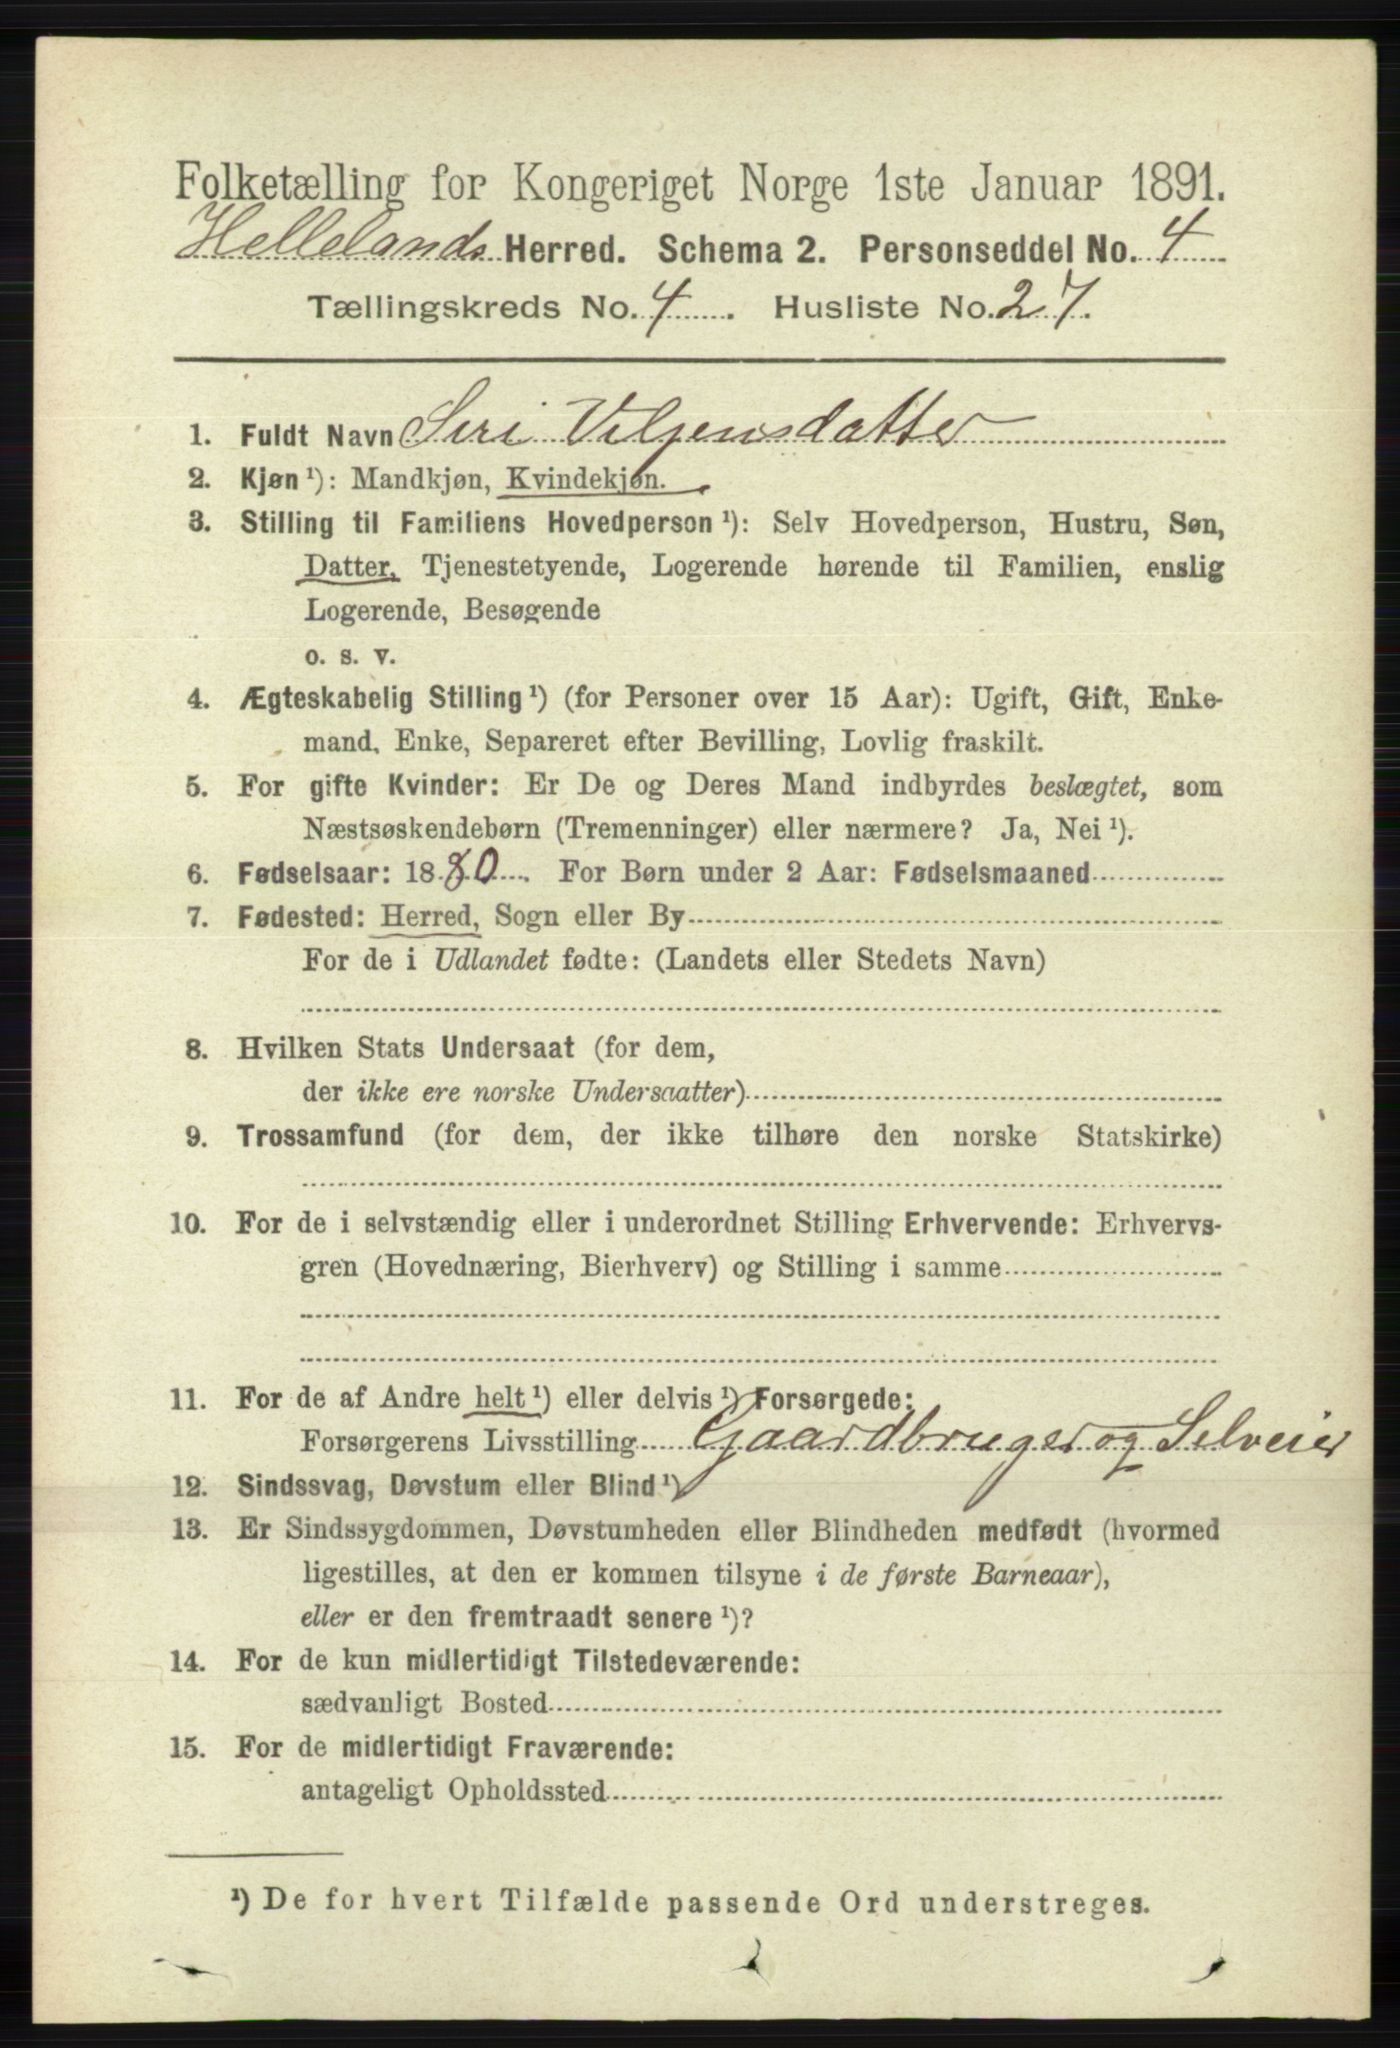 Folketælling for Kongeriget Norge 1ste Januar 1891.
Hellelands Herred. Schema 2. Personseddel No. 4
Tællingskreds No. 4. Husliste No. 27.
1. Fuldt Navn Siri Veljensdatter
2. Kjøn ¹): Mandkjøn, Kvindekjøn.
3. Stilling til Familiens Hovedperson ¹): Selv Hovedperson, Hustru, Søn,
Datter, Tjenestetyende, Logerende hørende til Familien, enslig
Logerende, Besøgende
o. s. v.
4. Ægteskabelig Stilling ¹) (for Personer over 15 Aar): Ugift, Gift, Enke-
mand, Enke, Separeret efter Bevilling, Lovlig fraskilt.
5. For gifte Kvinder: Er De og Deres Mand indbyrdes beslægtet, som
Næstsøskendebørn (Tremenninger) eller nærmere? Ja, Nei ¹).
6. Fødselsaar: 1880. For Børn under 2 Aar: Fødselsmaaned
7. Fødested: Herred, Sogn eller By
For de i Udlandet fødte: (Landets eller Stedets Navn)
8. Hvilken Stats Undersaat (for dem,
der ikke ere norske Undersaatter)
9. Trossamfund (for dem, der ikke tilhøre den norske Statskirke)
10. For de i selvstændig eller i underordnet Stilling Erhvervende: Erhvervs-
gren (Hovednæring, Bierhverv) og Stilling i samme
11. For de af Andre helt ¹) eller delvis ¹) Forsørgede:
Forsørgerens Livsstilling Gaardbruger og Selveier
12. Sindssvag, Døvstum eller Blind ¹)
13. Er Sindssygdommen, Døvstumheden eller Blindheden medfødt (hvormed
ligestilles, at den er kommen tilsyne i de første Barneaar),
eller er den fremtraadt senere ¹)?
14. For de kun midlertidigt Tilstedeværende:
sædvanligt Bosted
15. For de midlertidigt Fraværende:
antageligt Opholdssted
¹) De for hvert Tilfælde passende Ord understreges.